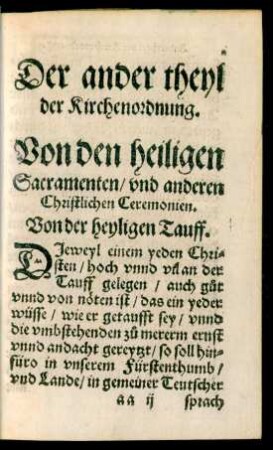 Der ander theyl
der Kirchenordnung.
Von den heiligen
Sacramenten/ vnd anderen
Christlichen Ceremonien.
Von der heyligen Tauff.
DJeweyl einem yeden Chri-
sten/ hoch vnnd vil an der
Tauff gelegen / auch gůt
vnnd von nöten ist / das ein yeder
wüsse / wie er getaufft sey / vnnd
die vmbstehenden zů mererm ernst
vnnd andacht gereytzt/ so soll hin-
füro in vnserem Fürstenthumb/
vnd Lande/ in gemeiner Teutscher
aa ij sprach